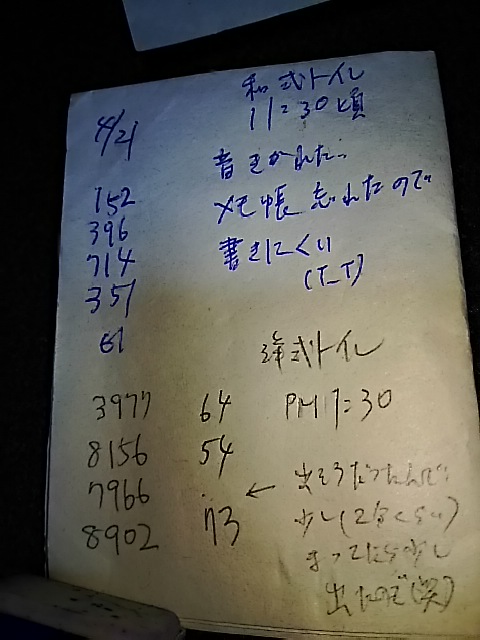 4/21
和式トイレ
11:30頃
音きかれた..
メモ帳忘れたので
書きにくい
(T_T)
152
396
714
351
61
洋式トイレ
PM 1:30
3977
8156
7966
8902
64
54
73
← 出そうだったんで
少し(2分くらい)
まってたら少し
出たのぞ(笑)